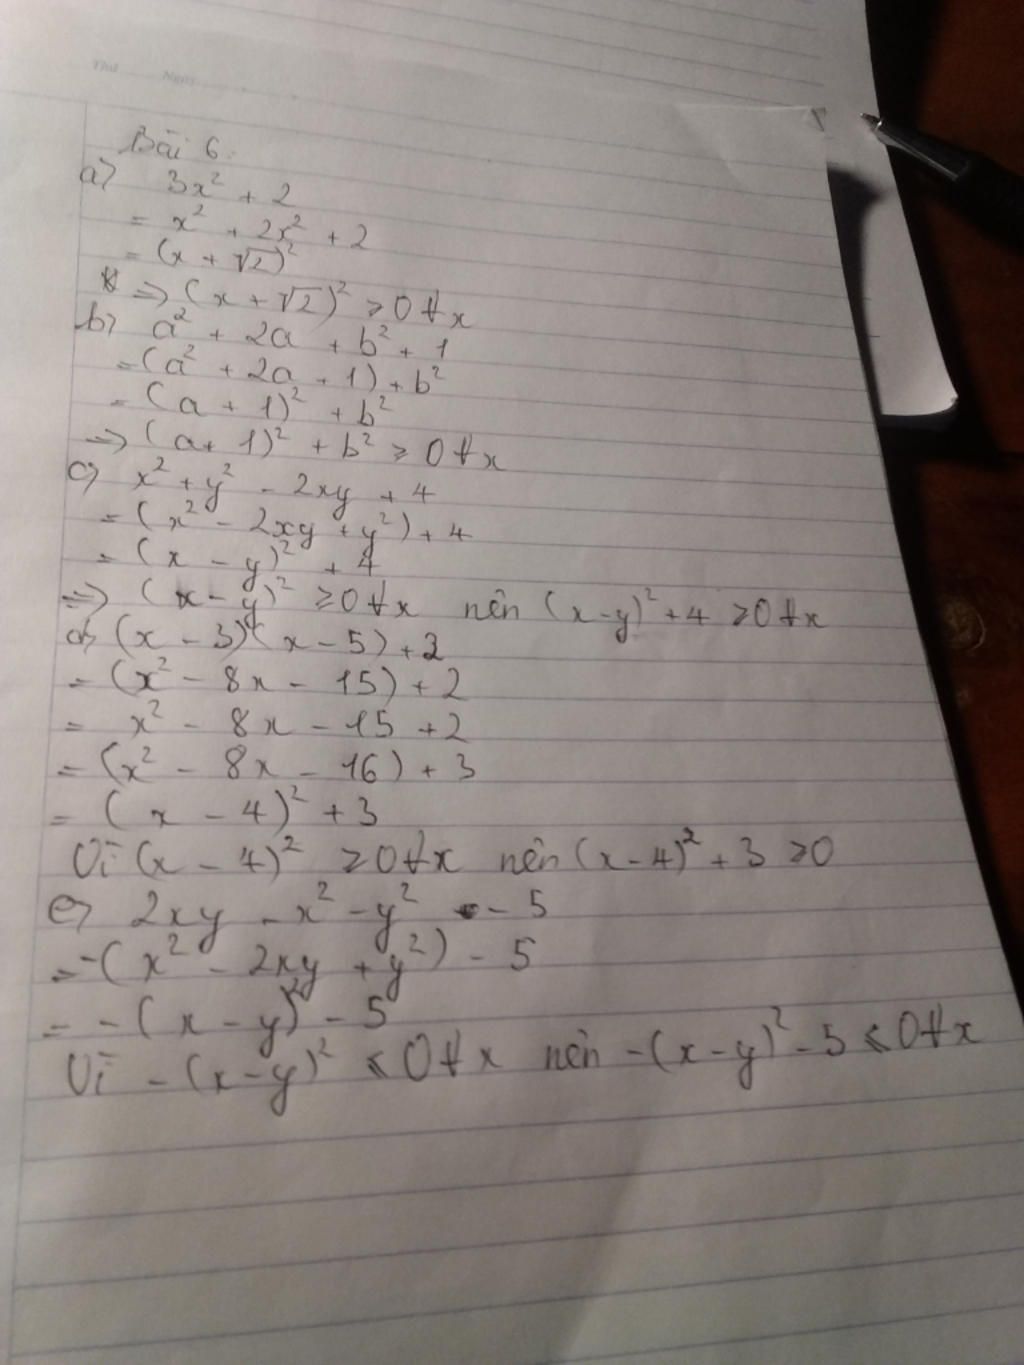 Thứ Ngày
Bài 6:
a) 3x² + 2
= x² + 2x² + 2
= (x + √2)²
=> (x + √2)² ≥ 0 ∀x
b) a² + 2a + b² + 1
= (a² + 2a + 1) + b²
= (a + 1)² + b²
=> (a + 1)² + b² ≥ 0 ∀x
c) x² + y² - 2xy + 4
= (x² - 2xy + y²) + 4
= (x - y)² + 4
=> (x - y)² ≥ 0 ∀x nên (x - y)² + 4 ≥ 0 ∀x
d) (x - 3)(x - 5) + 2
= (x² - 8x - 15) + 2
= x² - 8x - 15 + 2
= (x² - 8x - 16) + 3
= (x - 4)² + 3
Vì (x - 4)² ≥ 0 ∀x nên (x - 4)² + 3 ≥ 0
e) 2xy - x² - y² - 5
= -(x² - 2xy + y²) - 5
= -(x - y)² - 5
Vì -(x - y)² ≤ 0 ∀x nên -(x - y)² - 5 ≤ 0 ∀x